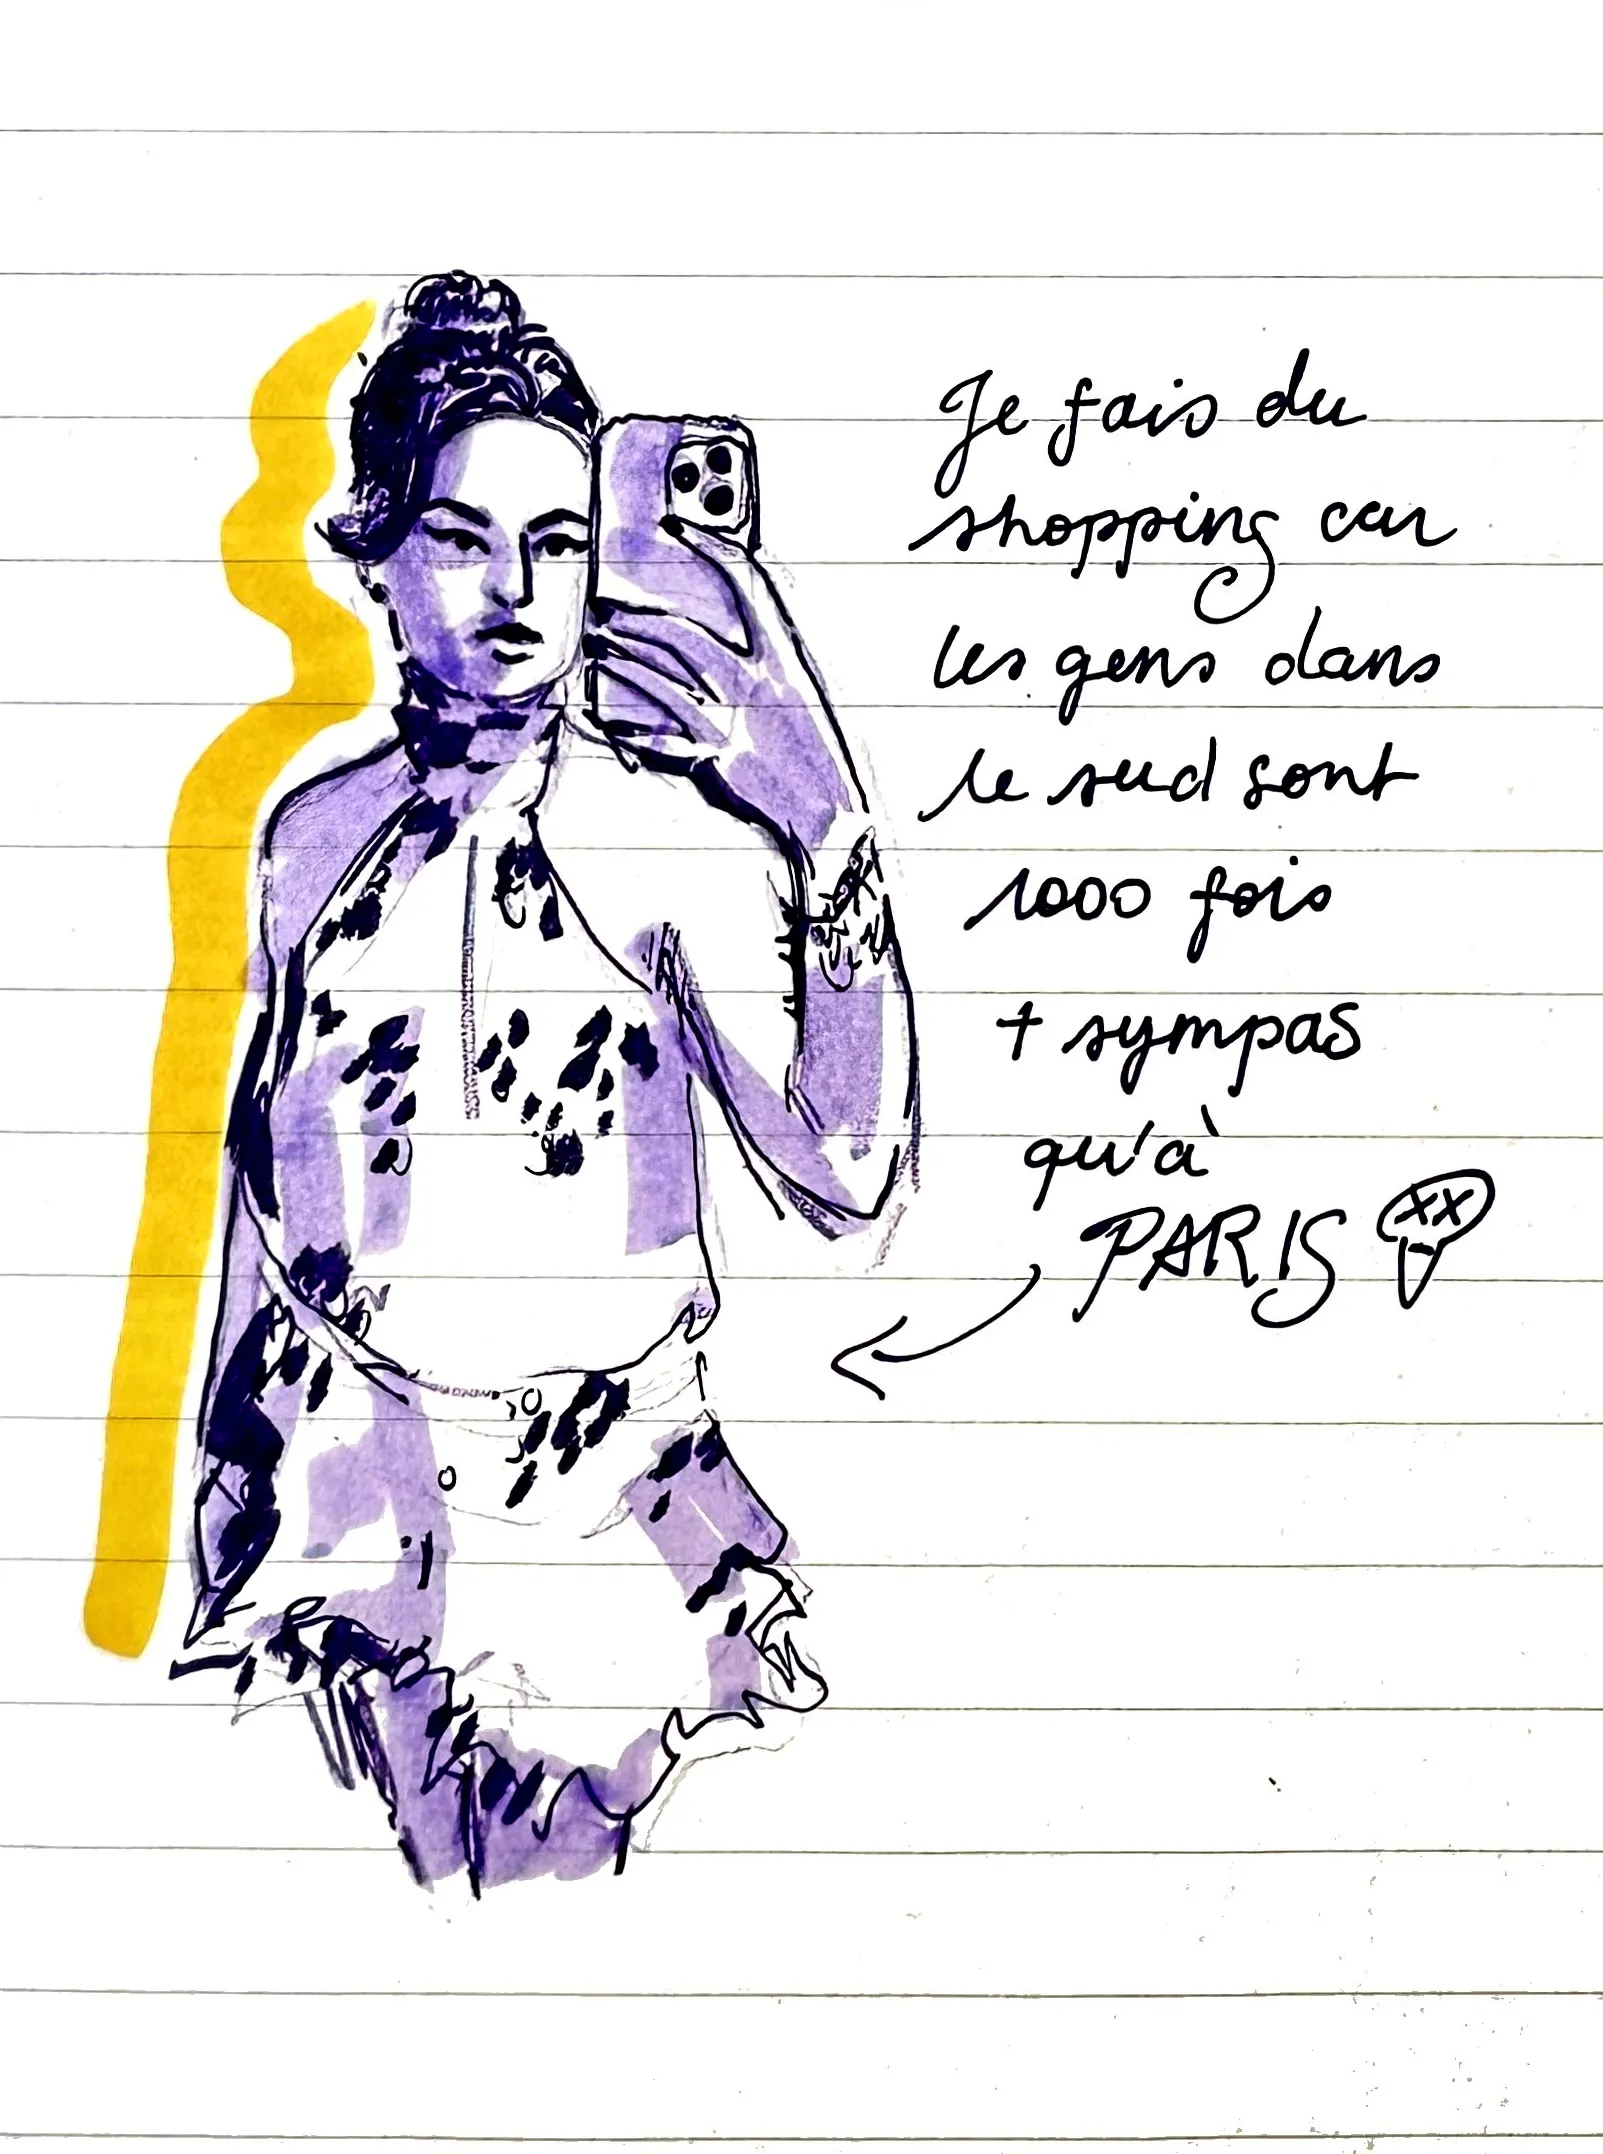 Je fais du
shopping car
les gens dans
le sud sont
1000 fois
+ sympas
qu'à
PARIS